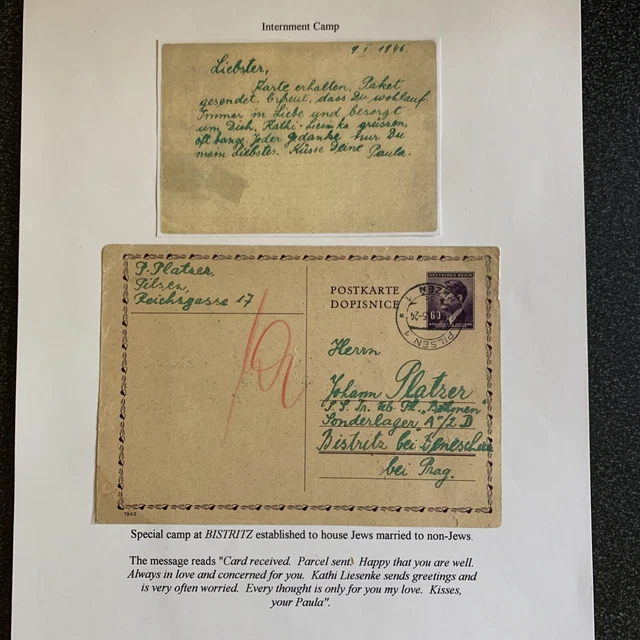 Internment Camp
9. I 1946.
Liebster,
Karte erhalten, Paket
gesendet. Erfreut, dass Du wohlauf.
Immer in Liebe und besorgt
um Dich. Kathi grüssen,
oft bange. Jeder Gedanke nur Du
mein Liebstes. Küsse Deine Paula.
P. Platzer,
Pilsen,
Reichsgasse 17
POSTKARTE
DOPISNICE
DEUTSCHES REICH
60
PILSEN 1
PLZEŇ 1
Herrn
Johann Platzer
"Böhmen"
Sonderlager "A"/2 D
Bistritz bei Beneschau
bei Prag.
1942
Special camp at BISTRITZ established to house Jews married to non-Jews.
The message reads "Card received. Parcel sent. Happy that you are well.
Always in love and concerned for you. Kathi Liesenke sends greetings and
is very often worried. Every thought is only for you my love. Kisses,
your Paula".